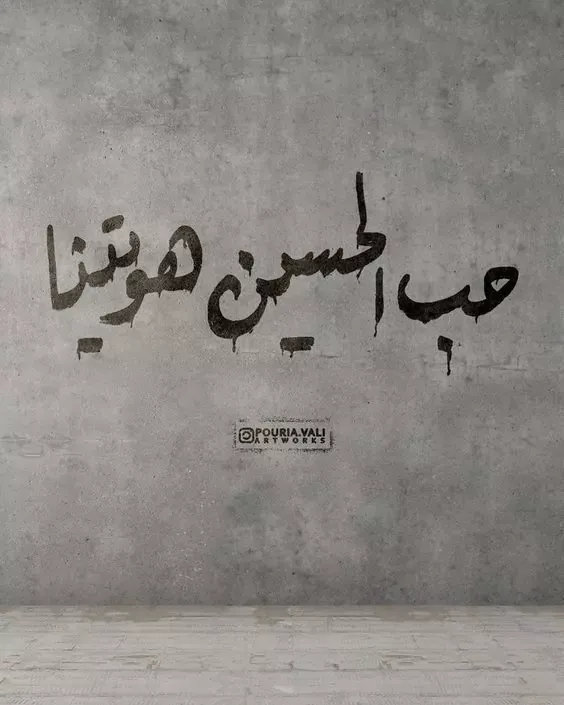 حب الحسین هویتنا
POURIA.VALI
ARTWORKS